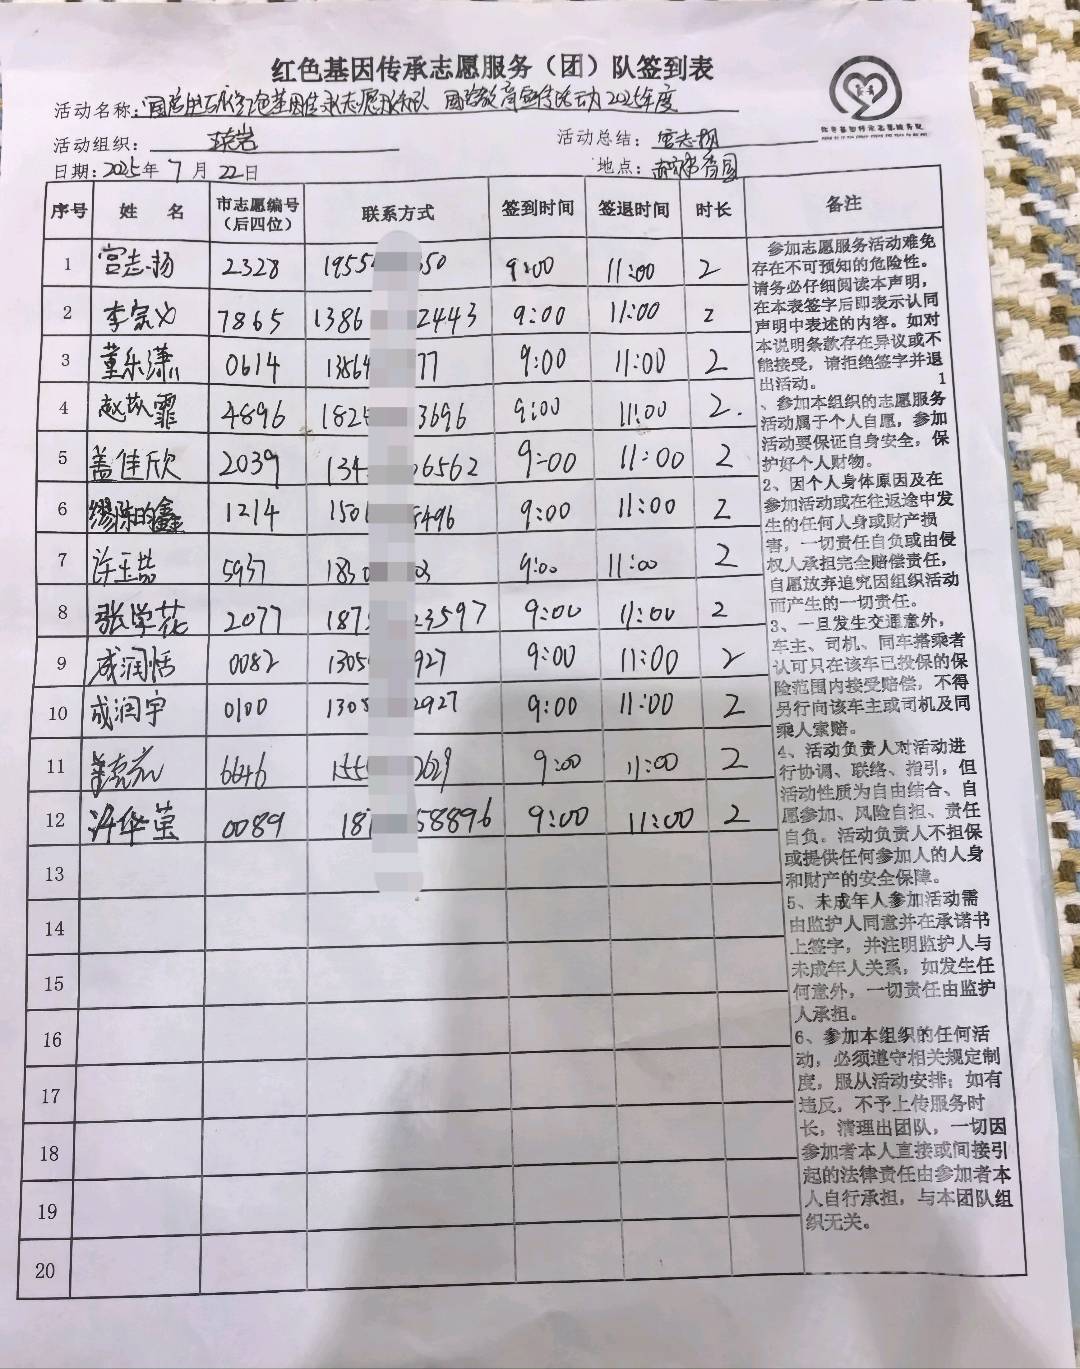 红色基因传承志愿服务（团）队签到表
活动名称： 红色基因传承志愿服务队 国防教育宣传活动2025年度
活动组织：
活动总结：宫志扬
日期：2025年7月22日
地点：
序号 姓 名 市志愿编号（后四位） 联系方式 签到时间 签退时间 时长 备注
1 宫志扬 2328 1955 50 9:00 11:00 2
2 李家义 7865 1386 2443 9:00 11:00 2
3 董乐潇 0614 13564 77 9:00 11:00 2
4 赵苡霏 4896 182 3696 9:00 11:00 2.
5 盖佳欣 2039 134 6562 9:00 11:00 2
6 1214 150 496 9:00 11:00 2
7 许玉喆 5937 183 03 9:00 11:00 2
8 张学花 2077 187 23597 9:00 11:00 2
9 成润恬 0082 1305 927 9:00 11:00 2
10 成润宇 0100 1305 2927 9:00 11:00 2
11 6646 155 2629 9:00 11:00 2
12 许华莹 0089 18 58896 9:00 11:00 2
13
14
15
16
17
18
19
20
参加志愿服务活动难免
存在不可预知的危险性。
请务必仔细阅读本声明，
在本表签字后即表示认同
声明中表述的内容。如对
本说明条款存在异议或不
能接受，请拒绝签字并退
出活动。 1
、参加本组织的志愿服务
活动属于个人自愿，参加
活动要保证自身安全，保
护好个人财物。
2、因个人身体原因及在
参加活动或在往返途中发
生的任何人身或财产损
害，一切责任自负或由侵
权人承担完全赔偿责任，
自愿放弃追究因组织活动
而产生的一切责任。
3、一旦发生交通意外，
车主、司机、同车搭乘者
认可只在该车已投保的保
险范围内接受赔偿，不得
另行向该车主或司机及同
乘人索赔。
4、活动负责人对活动进
行协调、联络、指引，但
活动性质为自由结合、自
愿参加、风险自担、责任
自负。活动负责人不担保
或提供任何参加人的人身
和财产的安全保障。
5、未成年人参加活动需
由监护人同意并在承诺书
上签字，并注明监护人与
未成年人关系，如发生任
何意外，一切责任由监护
人承担。
6、参加本组织的任何活
动，必须遵守相关规定制
度，服从活动安排；如有
违反，不予上传服务时
长，清理出团队，一切因
参加者本人直接或间接引
起的法律责任由参加者本
人自行承担，与本团队组
织无关。